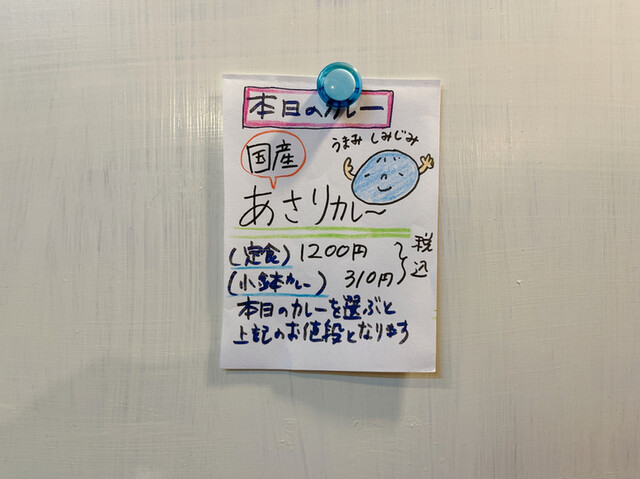 本日のカレー
うまみ しみじみ
国産
あさりカレ～
(定食) 1200円
(小鉢カレー) 310円
税込
本日のカレーを選ぶと
上記のお値段となります